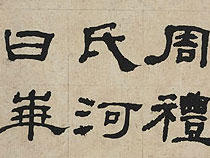 周禮
氏河
曰華